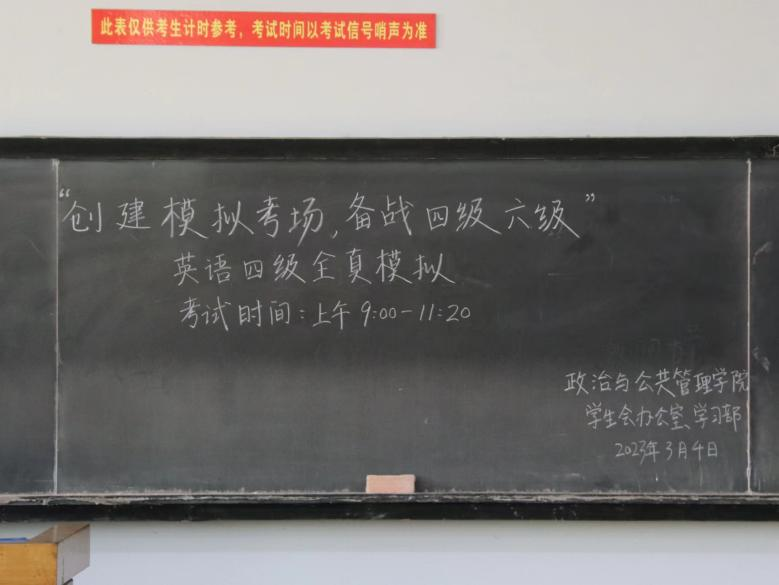 此表仅供考生计时参考，考试时间以考试信号哨声为准
“创建模拟考场，备战四级六级”
英语四级全真模拟
考试时间：上午 9:00-11:20
政治与公共管理学院
学生会办公室、学习部
2023年3月4日